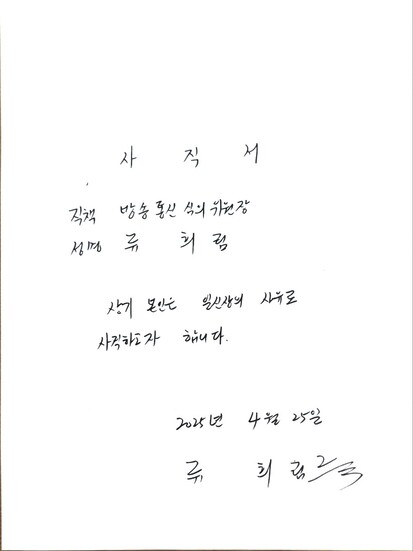 사 직 서
직책 방송통신심의위원장
성명 류 희 림
상기 본인은 일신상의 사유로
사직하고자 합니다.
2025년 4월 25일
류 희 림